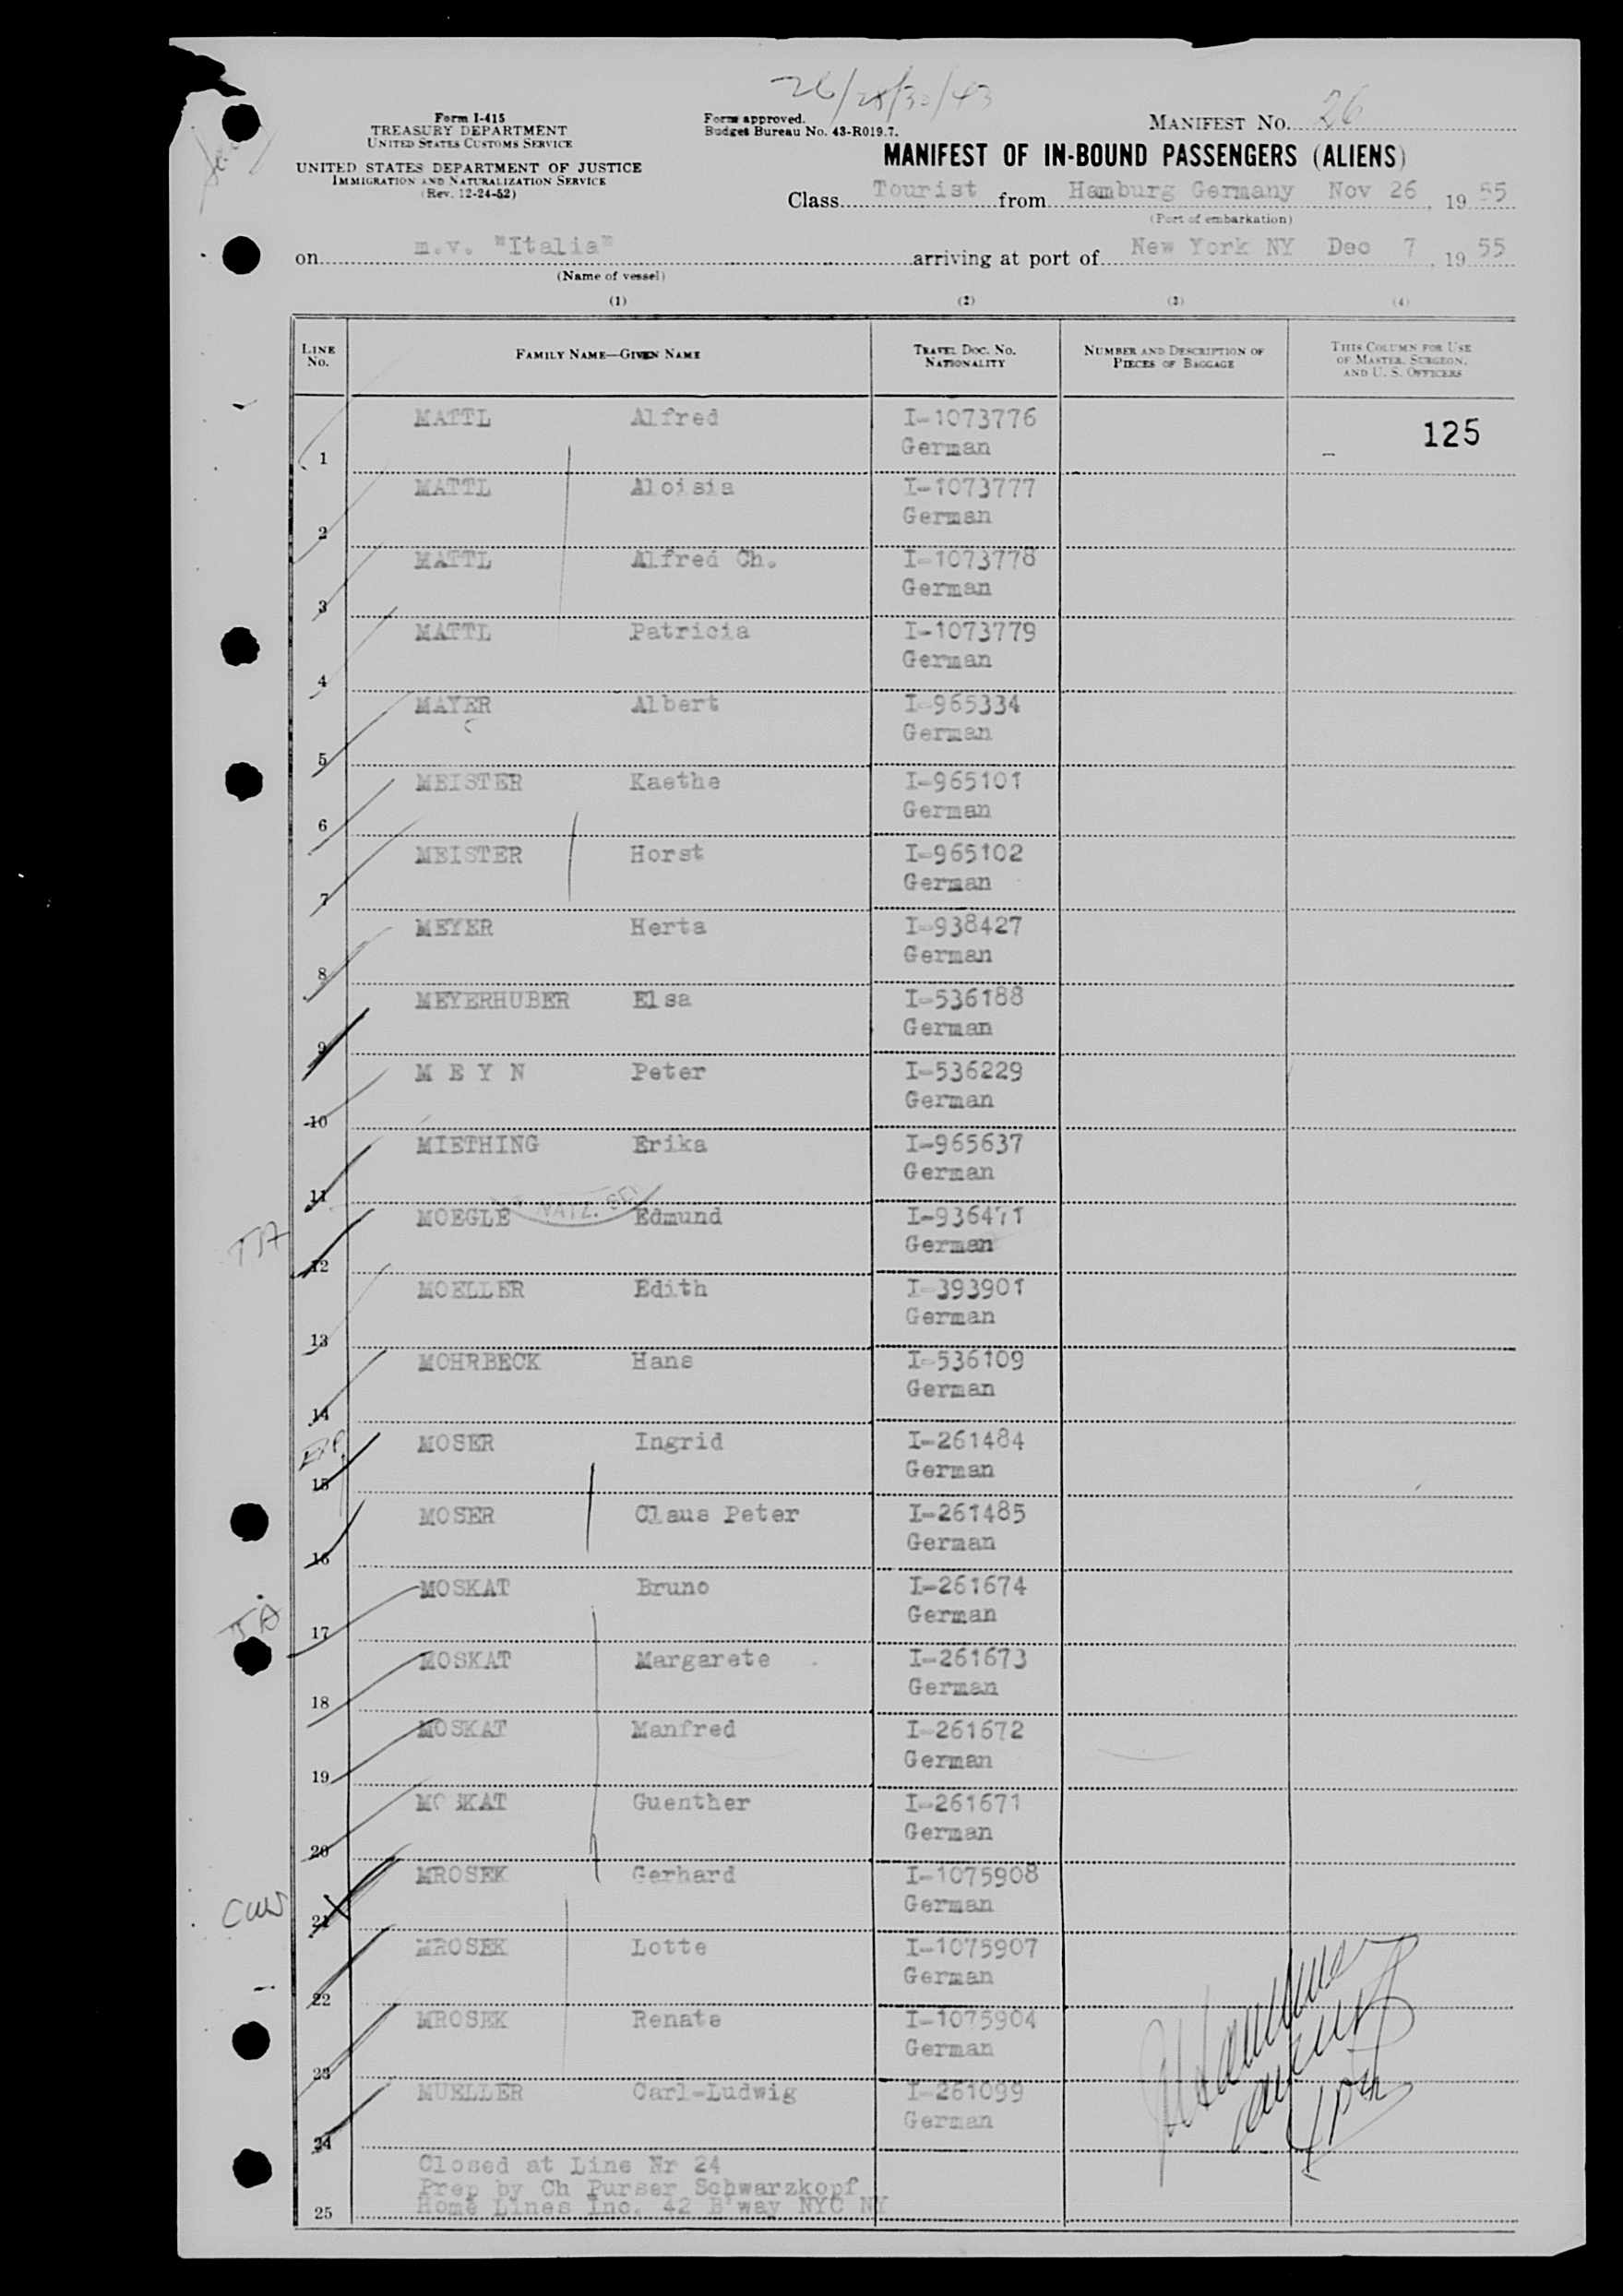 26/28/30/43
Form I-415
TREASURY DEPARTMENT
UNITED STATES CUSTOMS SERVICE
UNITED STATES DEPARTMENT OF JUSTICE
IMMIGRATION AND NATURALIZATION SERVICE
(Rev. 12-24-52)
Form approved.
Budget Bureau No. 43-R019.7.
MANIFEST NO. 26
MANIFEST OF IN-BOUND PASSENGERS (ALIENS)
Class Tourist from Hamburg Germany Nov 26, 19 55
(Port of embarkation)
on m.v. "Italia" arriving at port of New York NY Dec 7, 19 55
(Name of vessel)
(1) (2) (3) (4)
LINE NO. FAMILY NAME—GIVEN NAME TRAVEL DOC. NO. NATIONALITY NUMBER AND DESCRIPTION OF PIECES OF BAGGAGE THIS COLUMN FOR USE OF MASTER, SURGEON, AND U. S. OFFICERS
MATTL Alfred I-1073776
1 German 125
MATTL Aloisia I-1073777
2 German
MATTL Alfred Ch. I-1073778
3 German
MATTL Patricia I-1073779
4 German
MAYER Albert I-965334
5 German
MEISTER Kaethe I-965101
6 German
MEISTER Horst I-965102
7 German
MEYER Herta I-938427
8 German
MEYERHUBER Elsa I-536188
9 German
M E Y N Peter I-536229
10 German
MIETHING Erika I-965637
11 German
NATZ.
MOEGLE Edmund I-936471
12 German
MOELLER Edith I-393901
13 German
MOHRBECK Hans I-536109
14 German
MOSER Ingrid I-261484
15 German
MOSER Claus Peter I-261485
16 German
MOSKAT Bruno I-261674
17 German
MOSKAT Margarete I-261673
18 German
MOSKAT Manfred I-261672
19 German
MOSKAT Guenther I-261671
20 German
MROSEK Gerhard I-1075908
21 German
MROSEK Lotte I-1075907
22 German
MROSEK Renate I-1075904
23 German
MUELLER Carl-Ludwig I-261099
24 German
Closed at Line Nr 24
Prep by Ch Purser Schwarzkopf
Home Lines Inc. 42 B'way NYC NY
25